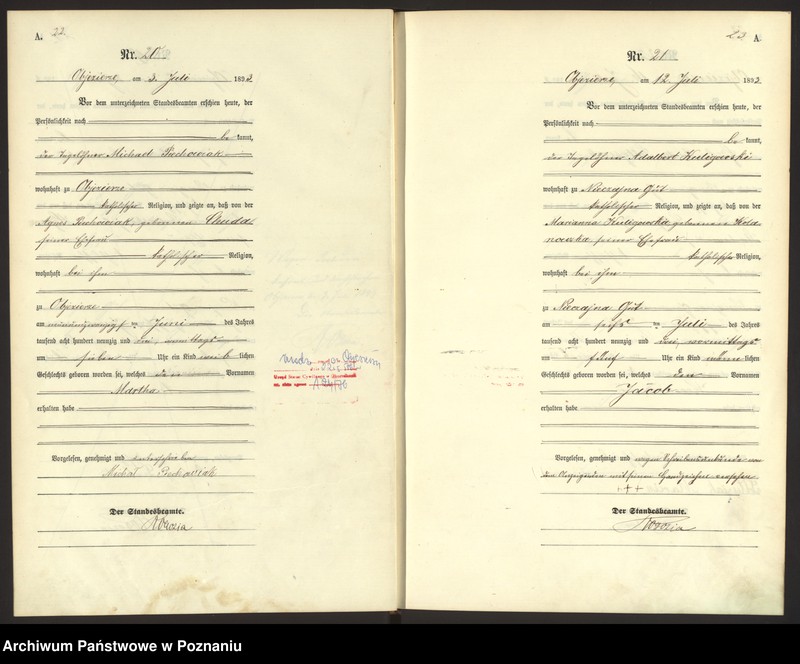 A. 22
Nr. 20
Objezierze, am 3. Juli 1893
Vor dem unterzeichneten Standesbeamten erschien heute, der
Persönlichkeit nach
be kannt,
der Tagelöhner Michael Piechowiak
wohnhaft zu Objezierze
katholischer Religion, und zeigte an, daß von der
Agnes Piechowiak, geborenen
seiner Ehefrau
katholischer Religion,
wohnhaft bei ihm
zu Objezierze
am neunundzwanzigsten Juni des Jahres
tausend acht hundert neunzig und drei, vormittags
um sieben Uhr ein Kind weib lichen
Geschlechts geboren worden sei, welches den Vornamen
Martha
erhalten habe
Vorgelesen, genehmigt und unterschrieben
Michał Piechowiak
Der Standesbeamte.
23 A.
Nr. 21
Objezierze, am 12. Juli 1893
Vor dem unterzeichneten Standesbeamten erschien heute, der
Persönlichkeit nach
be kannt,
der Tagelöhner Adalbert
wohnhaft zu Gut
katholischer Religion, und zeigte an, daß von der
Marianna geborenen
seiner Ehefrau
katholischer Religion,
wohnhaft bei ihm
zu Gut
am sechs ten Juli des Jahres
tausend acht hundert neunzig und drei, vormittags
um fünf Uhr ein Kind männ lichen
Geschlechts geboren worden sei, welches den Vornamen
Jacob
erhalten habe
Vorgelesen, genehmigt und wegen Schreibensunkunde von
dem Anzeigenden mit seinem Handzeichen versehen
+++
Der Standesbeamte.
Archiwum Państwowe w Poznaniu